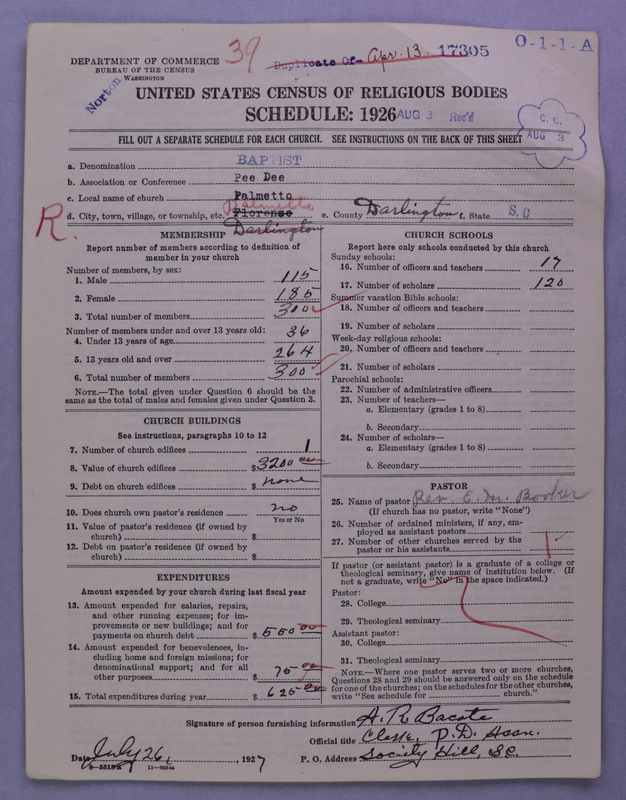 39
Duplicate Of- Apr. 13. 17305
O-1-1-A
DEPARTMENT OF COMMERCE
BUREAU OF THE CENSUS
WASHINGTON
Norton
UNITED STATES CENSUS OF RELIGIOUS BODIES
SCHEDULE: 1926 AUG 3 Rec'd
C. C.
AUG 3
FILL OUT A SEPARATE SCHEDULE FOR EACH CHURCH. SEE INSTRUCTIONS ON THE BACK OF THIS SHEET
a. Denomination BAPTIST
b. Association or Conference Pee Dee
c. Local name of church Palmetto
Palmetto
d. City, town, village, or township, etc. Florence e. County Darlington f. State S. C
Darlington
R.
MEMBERSHIP
Report number of members according to definition of
member in your church
Number of members, by sex:
1. Male 115
2. Female 185
3. Total number of members 300
Number of members under and over 13 years old:
4. Under 13 years of age 36
5. 13 years old and over 264
6. Total number of members 300
NOTE.—The total given under Question 6 should be the
same as the total of males and females given under Question 3.
CHURCH BUILDINGS
See instructions, paragraphs 10 to 12
7. Number of church edifices 1
8. Value of church edifices $3200 00
9. Debt on church edifices $ none
10. Does church own pastor's residence no
Yes or No
11. Value of pastor's residence (if owned by
church) $
12. Debt on pastor's residence (if owned by
church) $
EXPENDITURES
Amount expended by your church during last fiscal year
13. Amount expended for salaries, repairs,
and other running expenses; for im-
provements or new buildings; and for
payments on church debt $ 550 00
14. Amount expended for benevolences, in-
cluding home and foreign missions; for
denominational support; and for all
other purposes $ 75 00
15. Total expenditures during year $ 625 00
CHURCH SCHOOLS
Report here only schools conducted by this church
Sunday schools:
16. Number of officers and teachers 17
17. Number of scholars 120
Summer vacation Bible schools:
18. Number of officers and teachers
19. Number of scholars
Week-day religious schools:
20. Number of officers and teachers
21. Number of scholars
Parochial schools:
22. Number of administrative officers
23. Number of teachers—
a. Elementary (grades 1 to 8)
b. Secondary
24. Number of scholars—
a. Elementary (grades 1 to 8)
b. Secondary
PASTOR
25. Name of pastor Rev. E. M. Booker
(If church has no pastor, write "None")
26. Number of ordained ministers, if any, em-
ployed as assistant pastors
27. Number of other churches served by the
pastor or his assistants 1
If pastor (or assistant pastor) is a graduate of a college or
theological seminary, give name of institution below. (If
not a graduate, write "No" in the space indicated.)
Pastor:
28. College
29. Theological seminary
Assistant pastor:
30. College
31. Theological seminary
NOTE.—Where one pastor serves two or more churches,
Questions 28 and 29 should be answered only on the schedule
for one of the churches; on the schedules for the other churches,
write "See schedule for church."
Signature of person furnishing information A. R. Bacote
Official title Clerk, P. D. Assn.
Date July 26, , 1927 P. O. Address Society Hill, S.C.